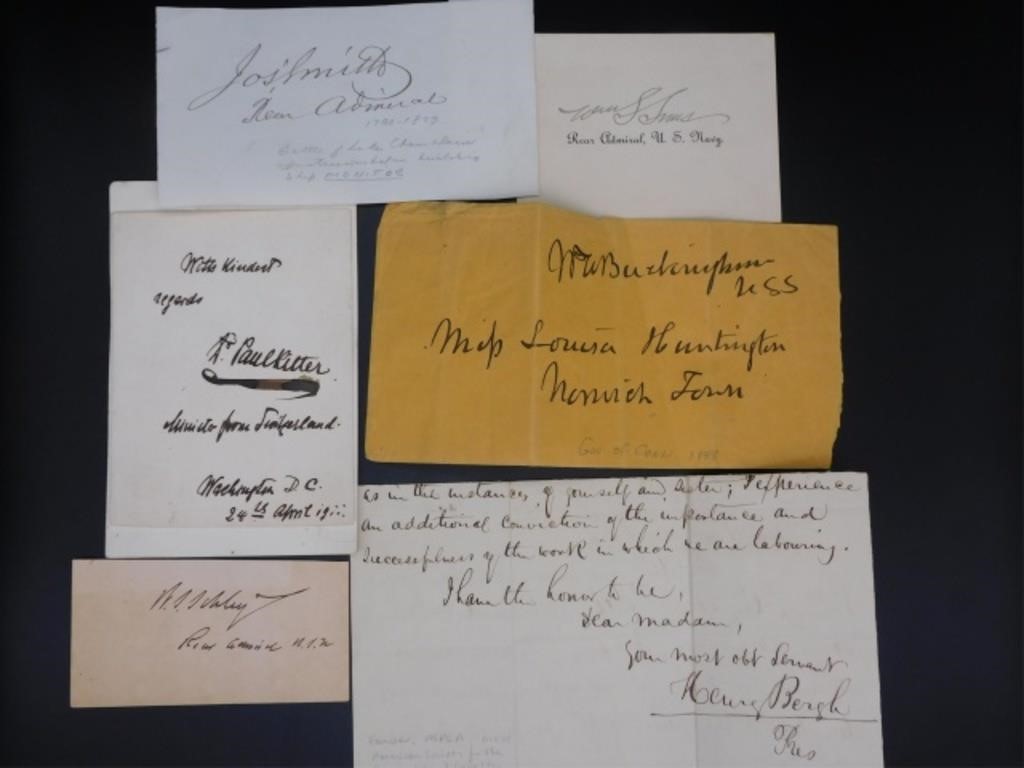 Jos Smith
Rear Admiral
1790-1877
Battle of Lake Champlain
building
ship MONITOR
Wm S Sims
Rear Admiral, U. S. Navy.
With kindest
regards
Dr. Paul Ritter.
Minister from Switzerland.
Washington D.C.
24th April 1911
Wm A Buckingham
USS
Miss Louisa Huntington
Norwich Town
Gov of Conn. 1858
W. S. Schley
Rear Admiral U.S.N
as in the instances of yourself and sister; I experience
an additional conviction of the importance and
successfulness of the work in which we are labouring.
I have the honor to be,
Dear Madam,
Your most obt Servant
Henry Bergh
Pres
Founder, ASPCA
American Society for the